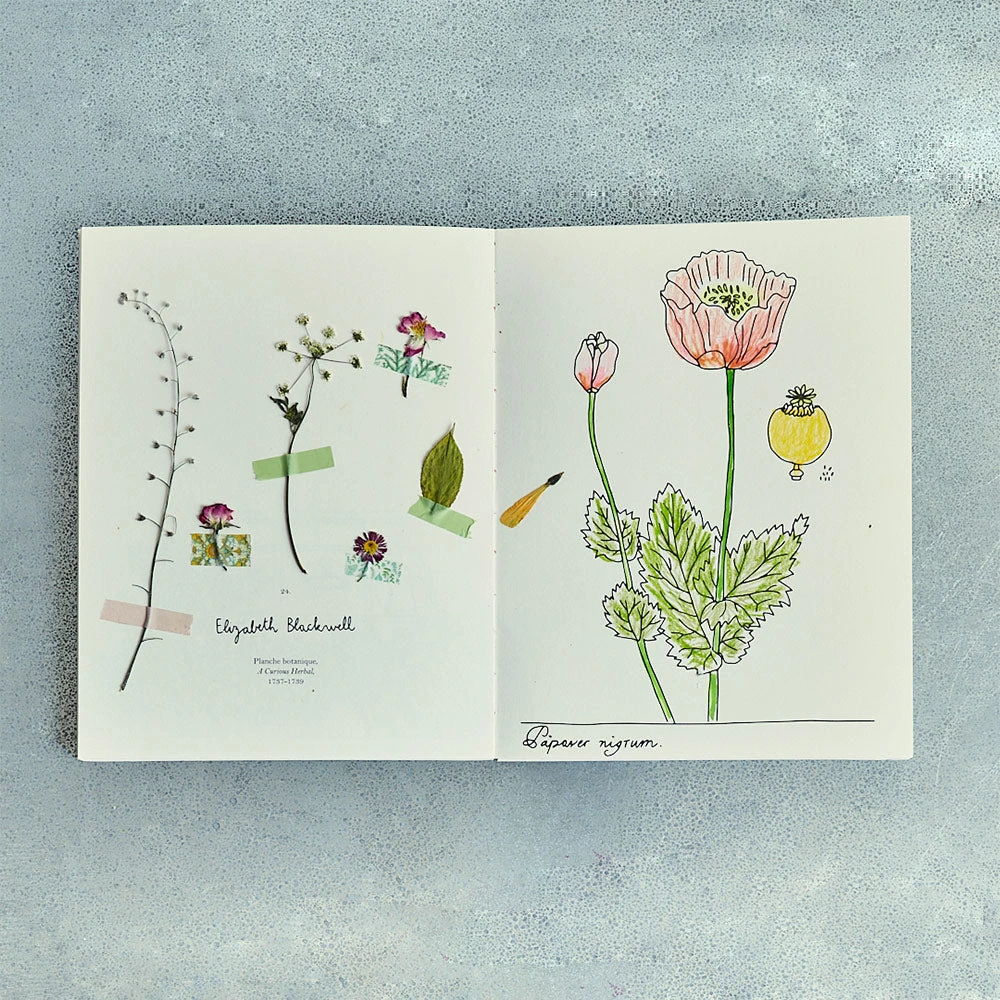 24.
Elizabeth Blackwell
Planche botanique,
A Curious Herbal,
1737-1739
Papaver nigrum.